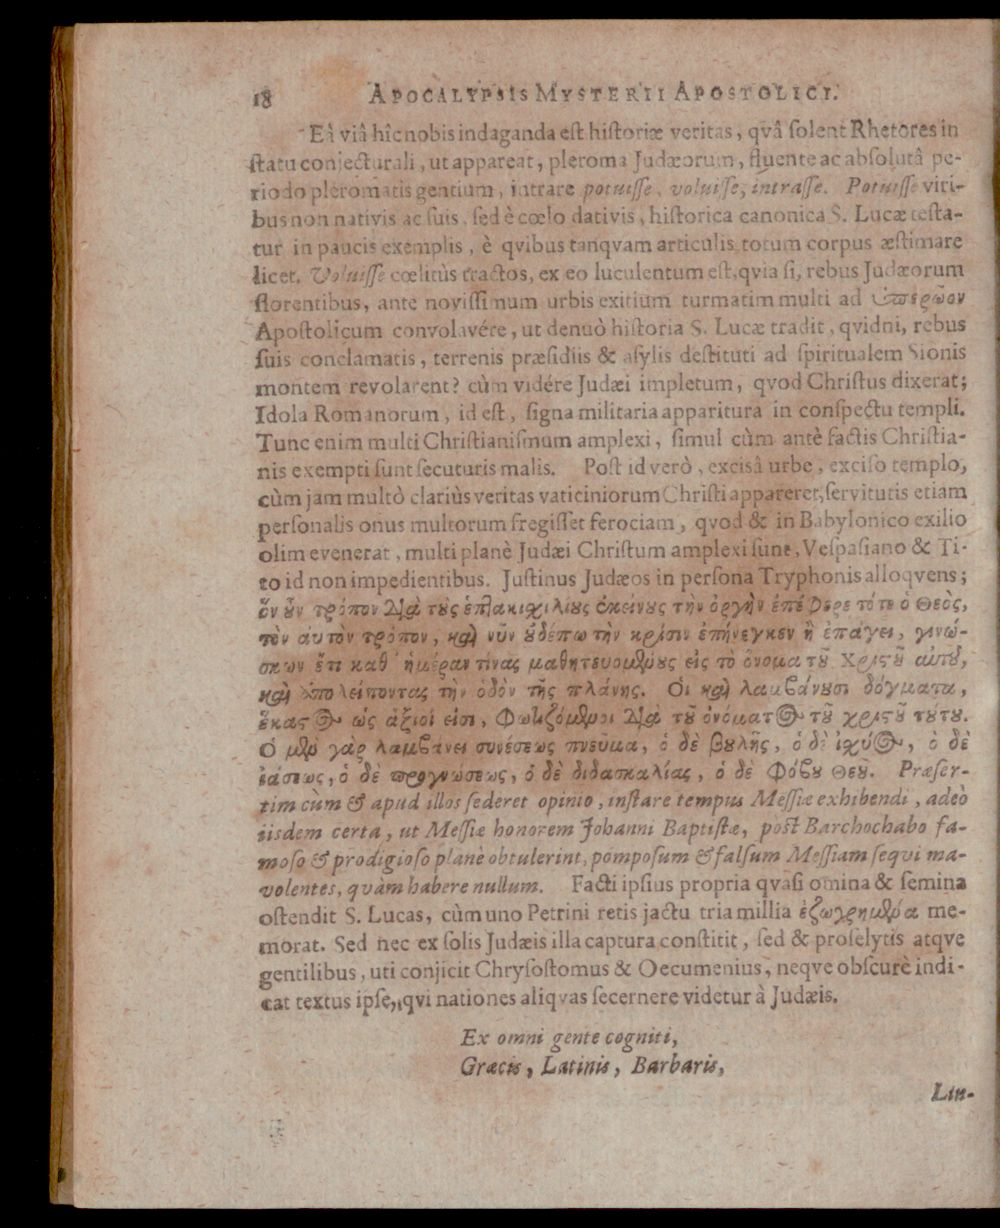 18 APOCALYPSIS MYSTERII APOSTOLICI.
Eâ viâ hîc nobis indaganda est historiæ veritas, qvâ solent Rhetores in
statu conjecturali, ut appareat, pleroma Judæorum, fluente ac absolutâ pe-
riodo pleromatis gentium, intrare potuisse, voluisse, intrasse. Potuisse viri-
bus non nativis ac suis, sed è cœlo dativis, historica canonica S. Lucæ testa-
tur in paucis exemplis, è qvibus tanqvam articulis totum corpus æstimare
licet. Voluisse cœlitùs tractos, ex eo luculentum est, qvia si, rebus Judæorum
florentibus, ante novissimum urbis exitium turmatim multi ad ὑπερῶον
Apostolicum convolavére, ut denuò historia S. Lucæ tradit, qvidni, rebus
suis conclamatis, terrenis præsidiis & asylis destituti ad spiritualem Sionis
montem revolarent? cùm vidére Judæi impletum, qvod Christus dixerat;
Idola Romanorum, id est, signa militaria apparitura in conspectu templi.
Tunc enim multi Christianismum amplexi, simul cùm antè factis Christia-
nis exempti sunt secuturis malis. Post id verò, excisâ urbe, exciso templo,
cùm jam multò clariùs veritas vaticiniorum Christi appareret, servitutis etiam
personalis onus multorum fregisset ferociam, qvod & in Babylonico exilio
olim evenerat, multi planè Judæi Christum amplexi sunt, Vespasiano & Ti-
to id non impedientibus. Justinus Judæos in persona Tryphonis alloqvens;
ὅν οὖν τρόπον διὰ τοὺς ἑπτακιχιλίους ἐκείνους τὴν ὀργὴν ἐπέφερε τότε ὁ Θεὸς,
τὸν αὐτὸν τρόπον, καὶ νῦν οὐδέπω τὴν κρίσιν ἐπήνεγκεν ἢ ἐπάγει, γινώ-
σκων ἔτι καθ᾽ ἡμέραν τίνας μαθητευομένους εἰς τὸ ὄνομα τοῦ Χριστοῦ αὐτοῦ,
καὶ ἀπολείποντας τὴν ὁδὸν τῆς πλάνης. Οἱ καὶ λαμβάνουσι δόγματα,
ἕκαστος ὡς ἄξιοί εἰσι, Φωτιζόμενοι διὰ τοῦ ὀνόματος τοῦ χριστοῦ τούτου.
Ὁ μὲν γὰρ λαμβάνει συνέσεως πνεῦμα, ὁ δὲ βουλῆς, ὁ δὲ ἰχύος, ὁ δὲ
ἰάσεως, ὁ δὲ προγνώσεως, ὁ δὲ διδασκαλίας, ὁ δὲ Φόβου Θεοῦ. Præser-
tim cùm & apud illos sederet opinio, instare tempus Messiæ exhibendi, adeò
iisdem certa, ut Messiæ honorem Johanni Baptistæ, pòst Barchochabo fa-
moso & prodigioso planè obtulerint, pomposum & falsum Messiam sequi ma-
volentes, quàm habere nullum. Facti ipsius propria qvasi omina & semina
ostendit S. Lucas, cùm uno Petrini retis jactu tria millia ἐζωγρημένα me-
morat. Sed nec ex solis Judæis illa captura constitit, sed & proselytis atqve
gentilibus, uti conjicit Chrysostomus & Oecumenius, neqve obscurè indi-
cat textus ipse, qvi nationes aliqvas secernere videtur à Judæis.
Ex omni gente cogniti,
Græcis, Latinis, Barbaris,
Lin-